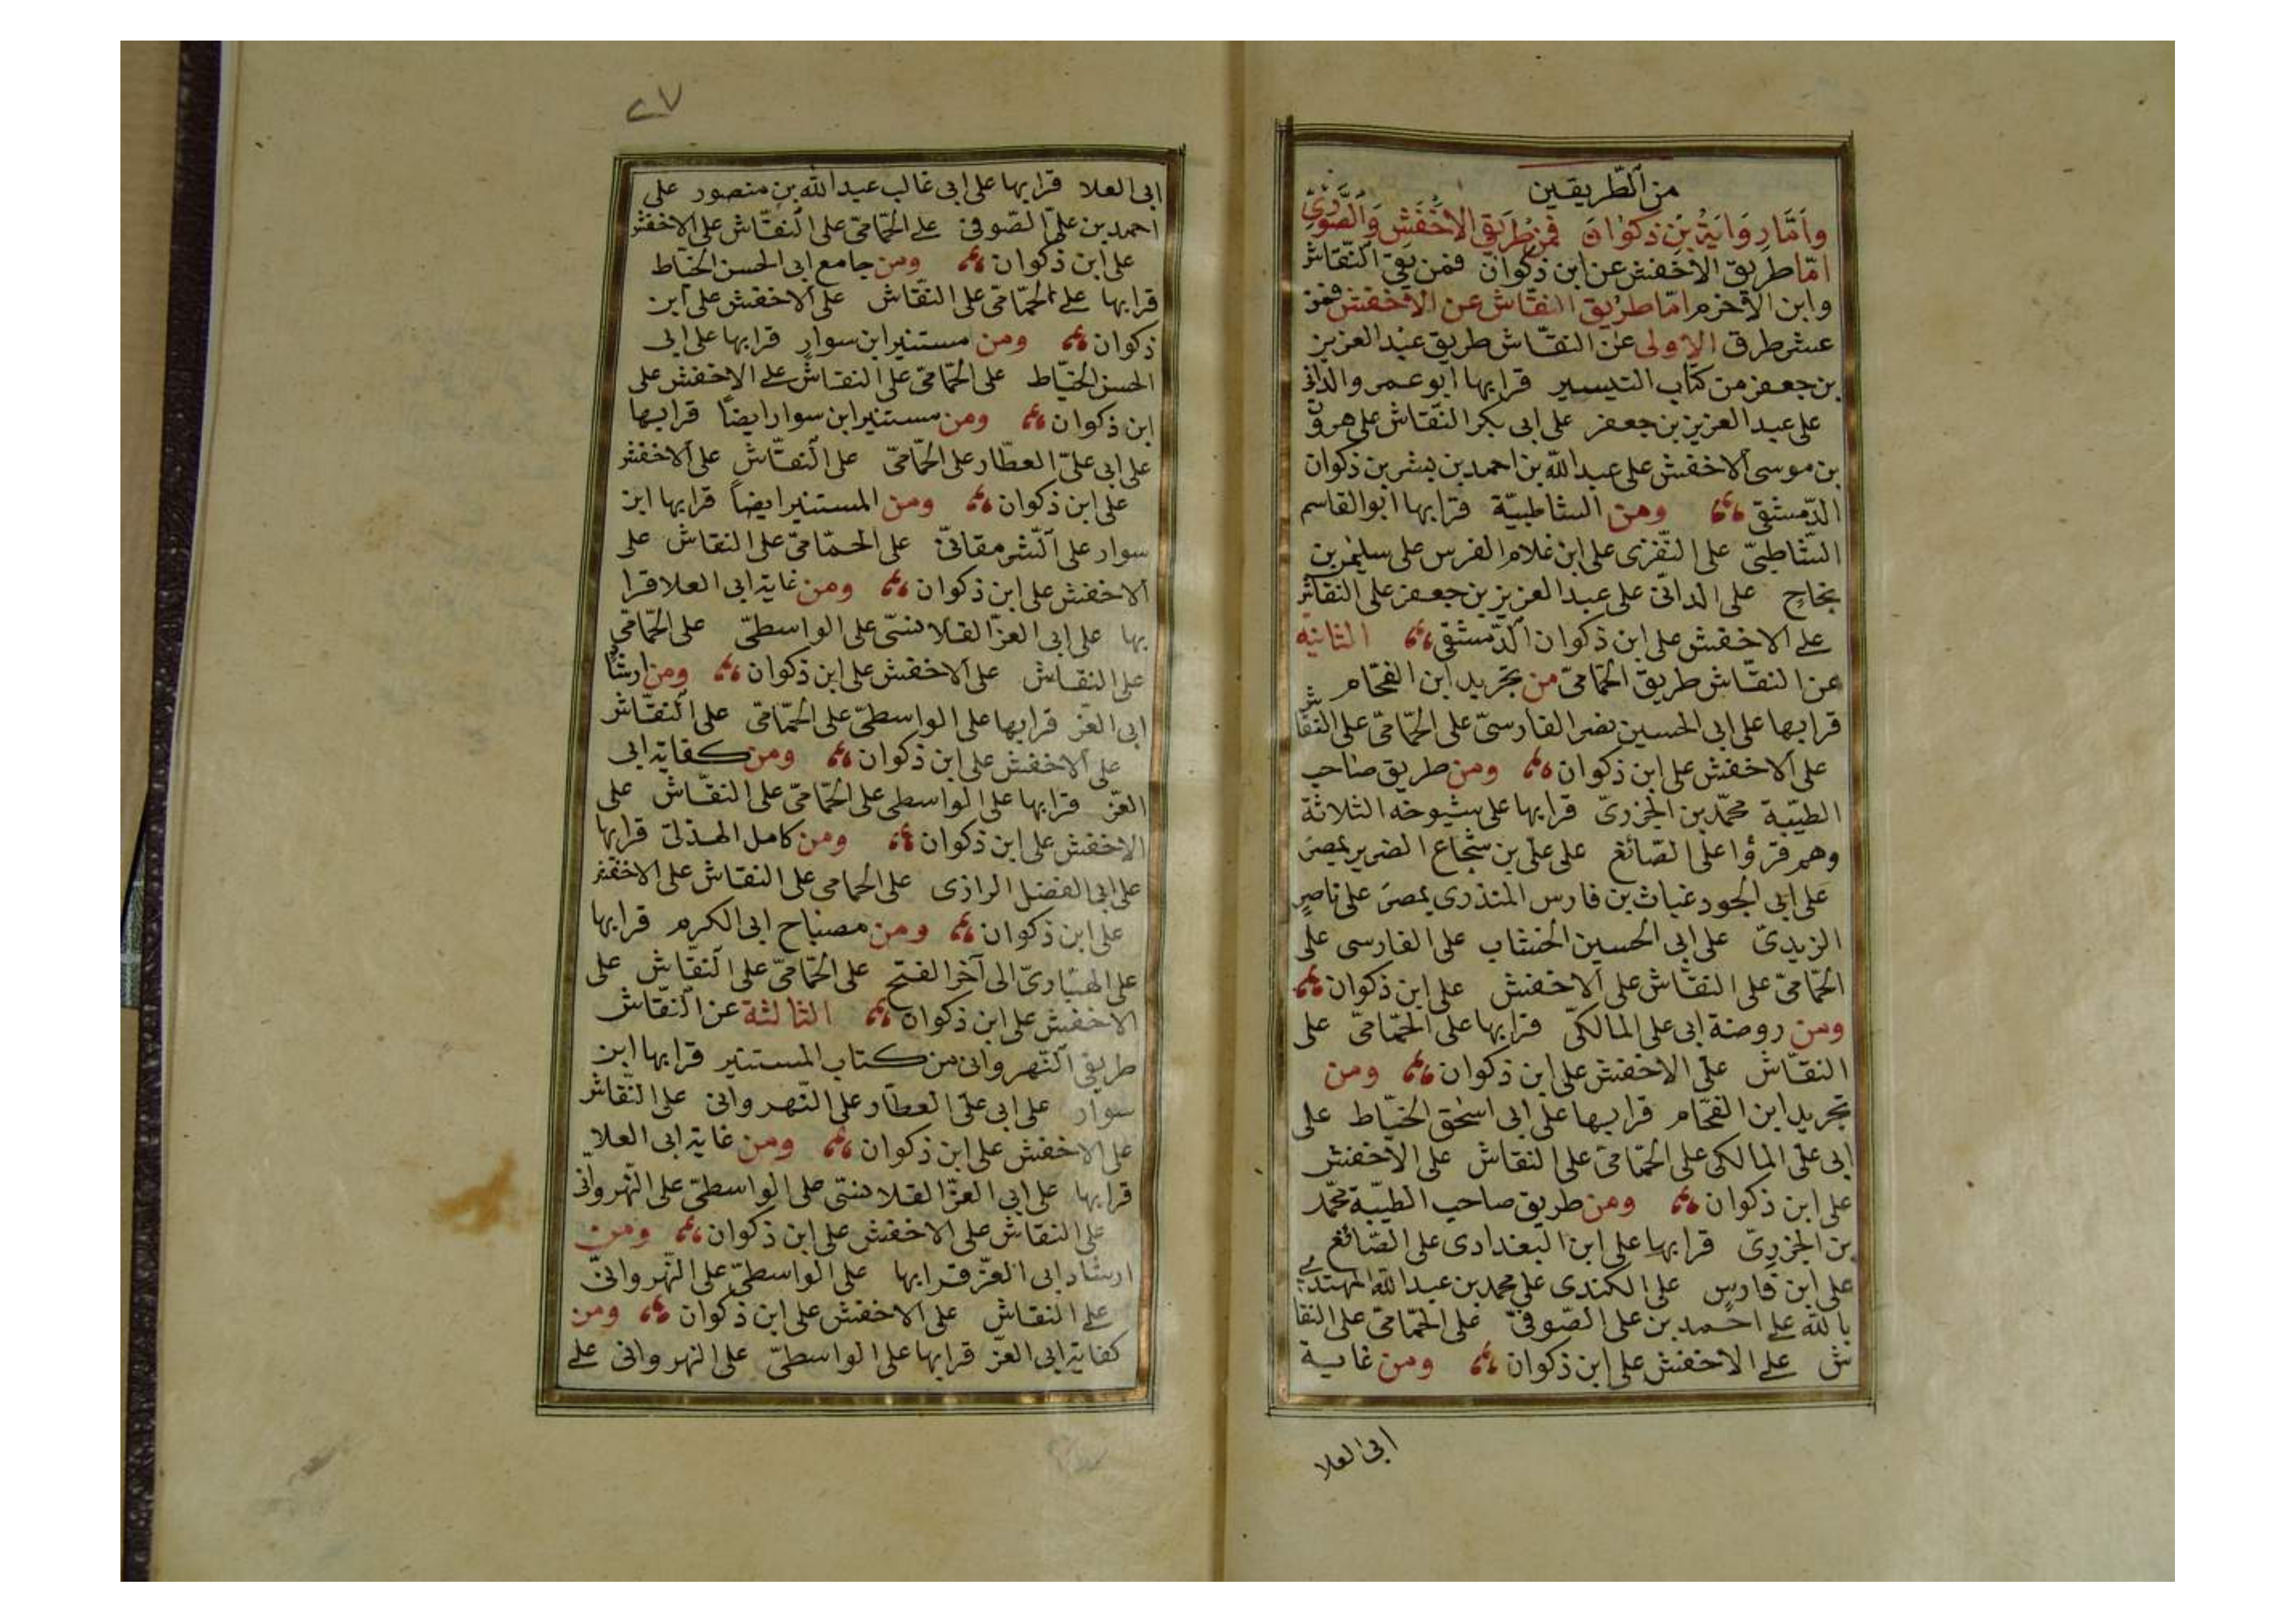 من الطريقين
وَاَمَّا رِوَايَةُ بْنِ ذَكْوَانَ فَمِنْ طَرِيقِ الْاَخْفَشِ وَالصُّورِيِّ
امّا طريق الاخفش عن ابن ذكوان فمن طريقى النقّاش
وابن الاخرم امّا طريق النقّاش عن الاخفش فمن
عشر طرق الاولى عن النقّاش طريق عبد العزيز
بن جعفر من كتاب التيسير قرا بها ابو عمرو الدانى
على عبد العزيز بن جعفر على ابى بكر النقّاش على هرون
بن موسى الاخفش على عبد الله بن احمد بن بشر بن ذكوان
الدّمشقى ومن الشاطبيّة قرا بها ابو القاسم
الشّاطبىّ على النّفزى على ابن غلام الفرس على سليمن بن
نجاح على الدانى على عبد العزيز بن جعفر على النقّاش
على الاخفش على ابن ذكوان الدّمشقى الثانية
عن النقّاش طريق الحمّامىّ من تجريد ابن الفحّام
قرا بها على ابى الحسين نصر الفارسىّ على الحمّامىّ على النقّاش
على الاخفش على ابن ذكوان ومن طريق صاحب
الطيّبة محمّد بن الجزرىّ قرا بها على شيوخه الثلاثة
وهم قرؤا على الصّائغ على على بن شجاع الضرير بمصر
على ابى الجود غياث بن فارس المنذرى بمصر على ناصر
الزيدىّ على ابى الحسين الخشّاب على الفارسى على
الحمّامىّ على النقّاش على الاخفش على ابن ذكوان
ومن روضة ابى على المالكىّ قرا بها على الحمّامىّ على
النقّاش على الاخفش على ابن ذكوان ومن
تجريد ابن الفحّام قرا بها على ابى اسحق الخيّاط على
ابى علىّ المالكى على الحمّامىّ على النقاش على الاخفش
على ابن ذكوان ومن طريق صاحب الطيّبة محمّد
بن الجزرىّ قرا بها على ابن البغدادى على الصّائغ
على ابن فارس على الكندى على محمد بن عبد الله المهتدى
بالله على احمد بن على الصّوفىّ على الحمّامىّ على النقا
ش على الاخفش على ابن ذكوان ومن غاية
ابى العلا
٢٧
ابى العلا قرا بها على ابى غالب عبد الله بن منصور على
احمد بن علىّ الصّوفى على الحمّامىّ على النقّاش على الاخفش
على ابن ذكوان ومن جامع ابى الحسن الخيّاط
قرا بها على الحمّامىّ على النقّاش على الاخفش على ابن
ذكوان ومن مستنير ابن سوار قرا بها على ابى
الحسن الخيّاط على الحمّامىّ على النقاش على الاخفش على
ابن ذكوان ومن مستنير ابن سوار ايضًا قرا بها
على ابى علىّ العطّار على الحمّامىّ على النقّاش على الاخفش
على ابن ذكوان ومن المستنير ايضاً قرا بها ابن
سوار على الشّرمقانىّ على الحمّامىّ على النقاش على
الاخفش على ابن ذكوان ومن غاية ابى العلا قرا
بها على ابى العزّ القلانسىّ على الواسطىّ على الحمّامىّ
على النقّاش على الاخفش على ابن ذكوان ومن ارشاد
ابى العزّ قرا بها على الواسطىّ على الحمّامىّ على النقّاش
على الاخفش على ابن ذكوان ومن كفاية ابى
العزّ قرا بها على الواسطى على الحمّامىّ على النقّاش على
الاخفش على ابن ذكوان ومن كامل الهذلىّ قرا بها
على ابى الفضل الرازى على الحمامى على النقاش على الاخفش
على ابن ذكوان ومن مصباح ابى الكرم قرا بها
على الهبّارىّ الى آخر الفتح على الحمّامىّ على النقّاش على
الاخفش على ابن ذكوان الثالثة عن النقّاش
طريق النّهروانى من كتاب المستنير قرا بها ابن
سوار على ابى علىّ العطّار على النّهروانى على النقّاش
على الاخفش على ابن ذكوان ومن غاية ابى العلا
قرا بها على ابى العزّ القلانسىّ على الواسطىّ على النّهروانّى
على النقاش على الاخفش على ابن ذكوان ومن
ارشاد ابى العزّ قرا بها على الواسطىّ على النّهروانىّ
على النقاش على الاخفش على ابن ذكوان ومن
كفاية ابى العزّ قرا بها على الواسطىّ على النهروانى على